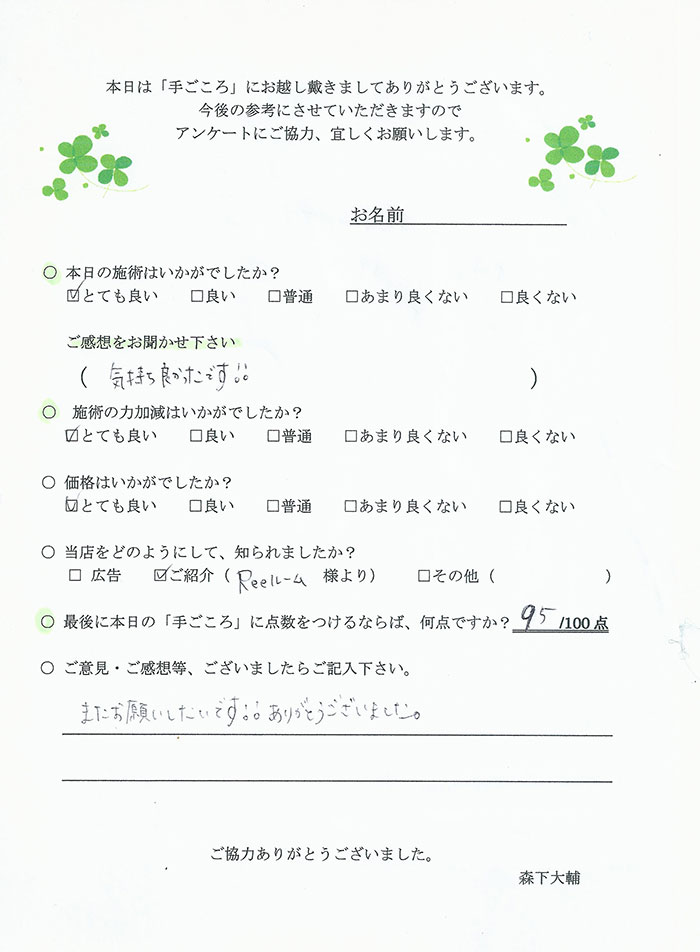 本日は「手ごころ」にお越し戴きましてありがとうございます。
今後の参考にさせていただきますので
アンケートにご協力、宜しくお願いします。
お名前
○ 本日の施術はいかがでしたか？
☑とても良い □良い □普通 □あまり良くない □良くない
ご感想をお聞かせ下さい
( 気持ち良かったです!! )
○ 施術の力加減はいかがでしたか？
☑とても良い □良い □普通 □あまり良くない □良くない
○ 価格はいかがでしたか？
☑とても良い □良い □普通 □あまり良くない □良くない
○ 当店をどのようにして、知られましたか？
□ 広告 ☑ご紹介（ Reelルーム 様より） □その他（ ）
○ 最後に本日の「手ごころ」に点数をつけるならば、何点ですか？ 95 /100点
○ ご意見・ご感想等、ございましたらご記入下さい。
またお願いしたいです!! ありがとうございました。
ご協力ありがとうございました。
森下大輔